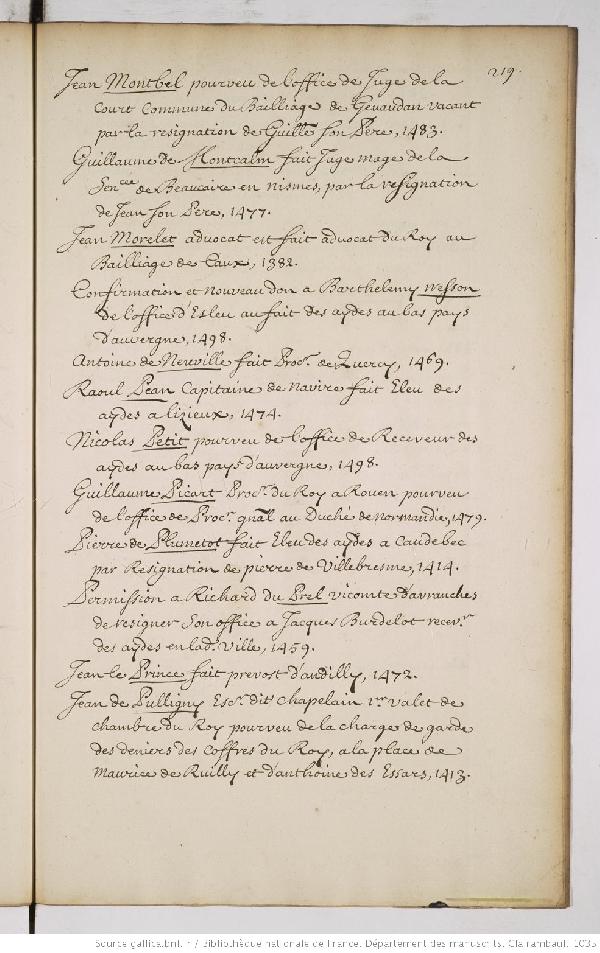 219.
Jean Montbel pourveu de l'office de Juge de la
Court Commune du Bailliage de Gevaudan vacant
par la resignation de Guille son Pere, 1483.
Guillaume de Montcalm fait Juge mage de la
Sen.cee de Beaucaire en nismes, par la resignation
de Jean son Pere, 1477.
Jean Morelet advocat est fait advocat du Roy au
Bailliage de Caux, 1382.
Confirmation et nouveau don a Barthelemy Nesson
de l'office d'Esleu au fait des aydes au bas pays
d'auvergne, 1498.
Antoine de Neuville fait Proc.r de Quercy, 1469.
Raoul Pean Capitaine de navire fait Eleu des
aydes a lizieux, 1474.
Nicolas Petit pourveu de l'office de Receveur des
aydes au bas pays d'auvergne, 1498.
Guillaume Picart Proc.r du Roy a Rouen pourveu
de l'office de Proc.r gnal au Duché de normandie, 1479.
Pierre de Plumetot fait Eleu des aydes a Caudebec
par Resignation de pierre de Villebresme, 1414.
Permission a Richard du Prel vicomte d'avranches
de resigner son office a Jacques Burdelot recev.r
des aydes en lad. ville, 1459.
Jean le Prince fait prevost d'andilly, 1472.
Jean de Pulligny Esc.r dit Chapelain 1.er valet de
chambre du Roy pourveu de la charge de garde
des deniers des Coffres du Roy, a la place de
Maurice de Ruilly et d'anthoine des Essars, 1413.
Source gallica.bnf.fr / Bibliothèque nationale de France. Département des manuscrits. Clairambault 1035